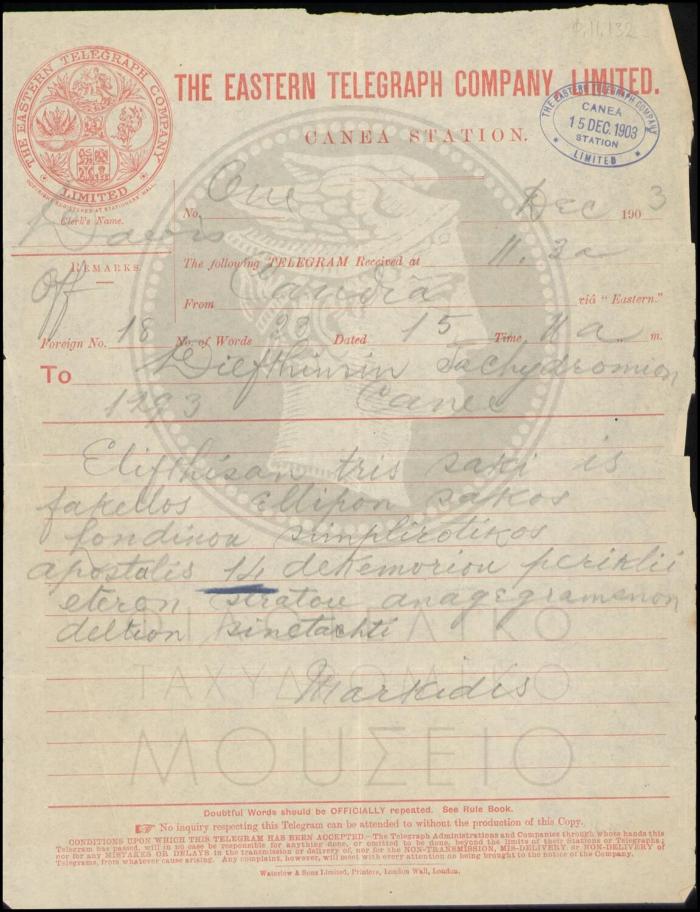 THE EASTERN TELEGRAPH COMPANY, LIMITED.
CANEA STATION.
THE EASTERN TELEGRAPH COMPANY
LIMITED
COPYRIGHT REGISTERED AT STATIONERS' HALL
THE EASTERN TELEGRAPH COMPANY
CANEA
15 DEC. 1903
STATION
LIMITED
Clerk's Name.
No. One Dec 1903
REMARKS.
Off
The following TELEGRAM Received at 11.3a
From Candia viâ "Eastern."
Foreign No. 18 No. of Words 23 Dated 15 Time, 11 a m.
To Diefthinsin Tachydromion
1293 Canee
Elifthisan tris saki is
fakellos ellipon sakos
londinou simplirotikos
apostolis 14 dekemvriou periklii
eteron stratou anagegramenon
deltion sinetachti
Markidis
ΤΑΧΥΔΡΟΜΙΚΟ
ΜΟΥΣΕΙΟ
Doubtful Words should be OFFICIALLY repeated. See Rule Book.
No inquiry respecting this Telegram can be attended to without the production of this Copy.
CONDITIONS UPON WHICH THIS TELEGRAM HAS BEEN ACCEPTED.—The Telegraph Administrations and Companies through whose hands this
Telegram has passed, will in no case be responsible for anything done, or omitted to be done, beyond the limits of their Stations or Telegraphs;
nor for any MISTAKES OR DELAYS in the transmission or delivery of, nor for the NON-TRANSMISSION, MIS-DELIVERY, or NON-DELIVERY of
Telegrams, from whatever cause arising. Any complaint, however, will meet with every attention on being brought to the notice of the Company.
Waterlow & Sons Limited, Printers, London Wall, London.